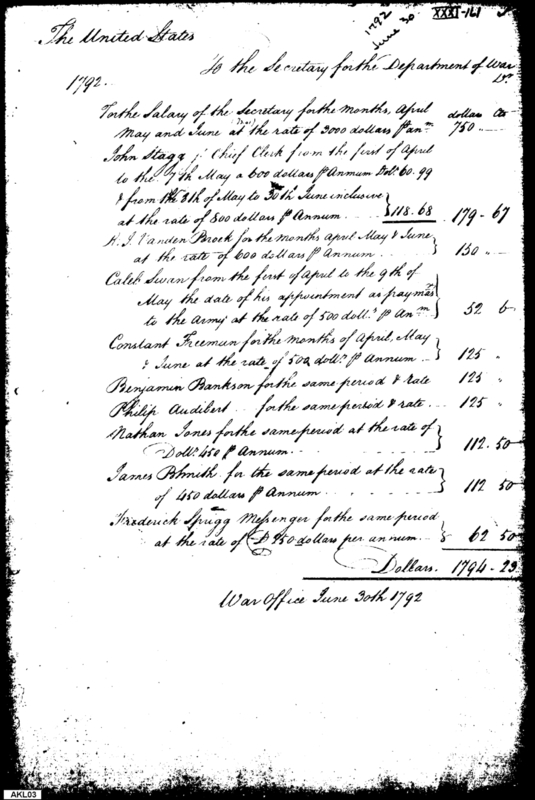 1792
June 30
XXXI-161
The United States
To the Secretary for the Department of War
Dr.
1792.
dollars Cts
For the Salary of the Secretary for the months, April
May and June at the rate of 3000 dollars ⅌ anm 750
John Stagg jr Chief Clerk from the first of April
to the 7th May a 600 dollars ⅌ Annum Dols. 60.99
& from the 8th of May to 30th June inclusive
at the rate of 800 dollars ⅌ Annum 118.68 179-67
Vanden Brock for the months April May & June
at the rate of 600 dollars ⅌ Annum 150
Caleb Swan from the first of April to the 9th of
May the date of his appointment as paymas
to the Army at the rate of 500 dolls ⅌ Anm 52 6
Constant Freeman for the months of April, May
& June at the rate of 500 dolls ⅌ Annum 125 "
Benjamin Bankson for the same period & rate 125 "
Philip Audibert for the same period & rate 125 "
Nathan Jones for the same period at the rate of
Dolls. 450 ⅌ Annum 112.50
James for the same period at the rate
of 450 dollars ⅌ Annum 112 50
Frederick Sprigg Messenger for the same period
at the rate of 250 dollars per annum 62 50
Dollars. 1794-23
War Office June 30th 1792
AKL03